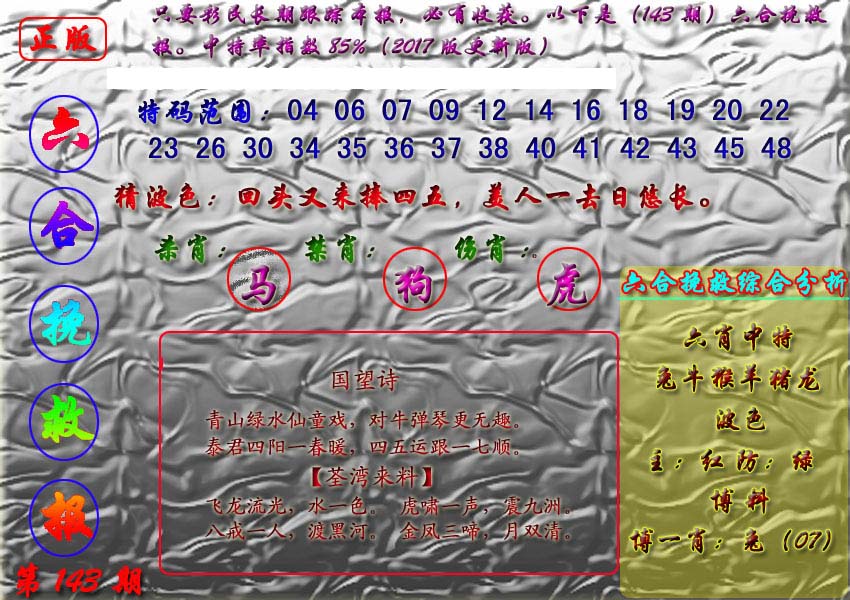 正版
只要彩民长期跟踪本报，必有收获。以下是（143期）六合挽救
报。中特率指数85%（2017版更新版）
六合挽救报
第143期
特码范围：04 06 07 09 12 14 16 18 19 20 22
23 26 30 34 35 36 37 38 40 41 42 43 45 48
猜波色：回头又来捧四五，美人一去日悠长。
杀肖：马 禁肖：狗 伤肖：虎
国望诗
青山绿水仙童戏，对牛弹琴更无趣。
泰君四阳一春暖，四五运跟一七顺。
【荃湾来料】
飞龙流光，水一色。 虎啸一声，震九洲。
八戒一人，渡黑河。 金凤三啼，月双清。
六合挽救综合分析
六肖中特
兔牛猴羊猪龙
波色
主：红防：绿
博料
博一肖：兔（07）